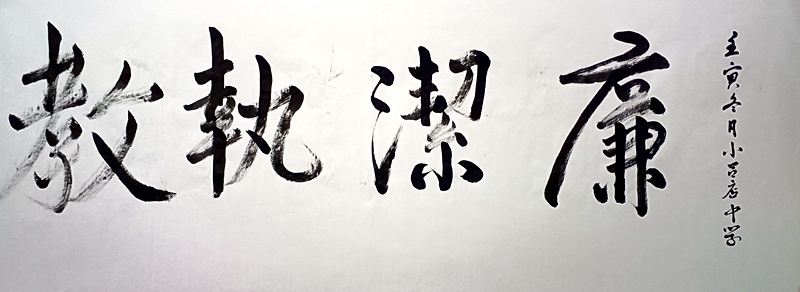 壬寅冬月小吕店中学
廉潔執教